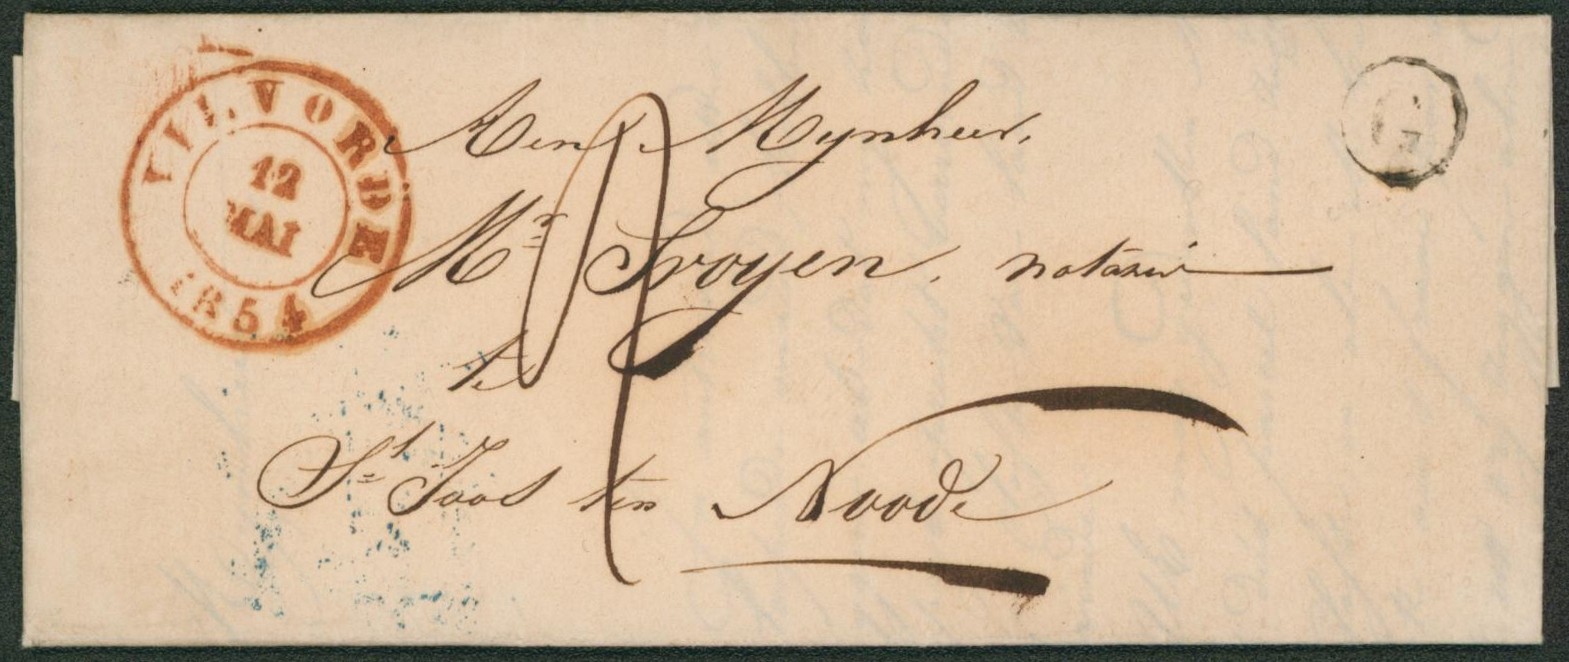 VILVORDE
12
MAI
1854
Aen Mynheer,
Mr Troyen, notaris
te
St Joos ten Noode